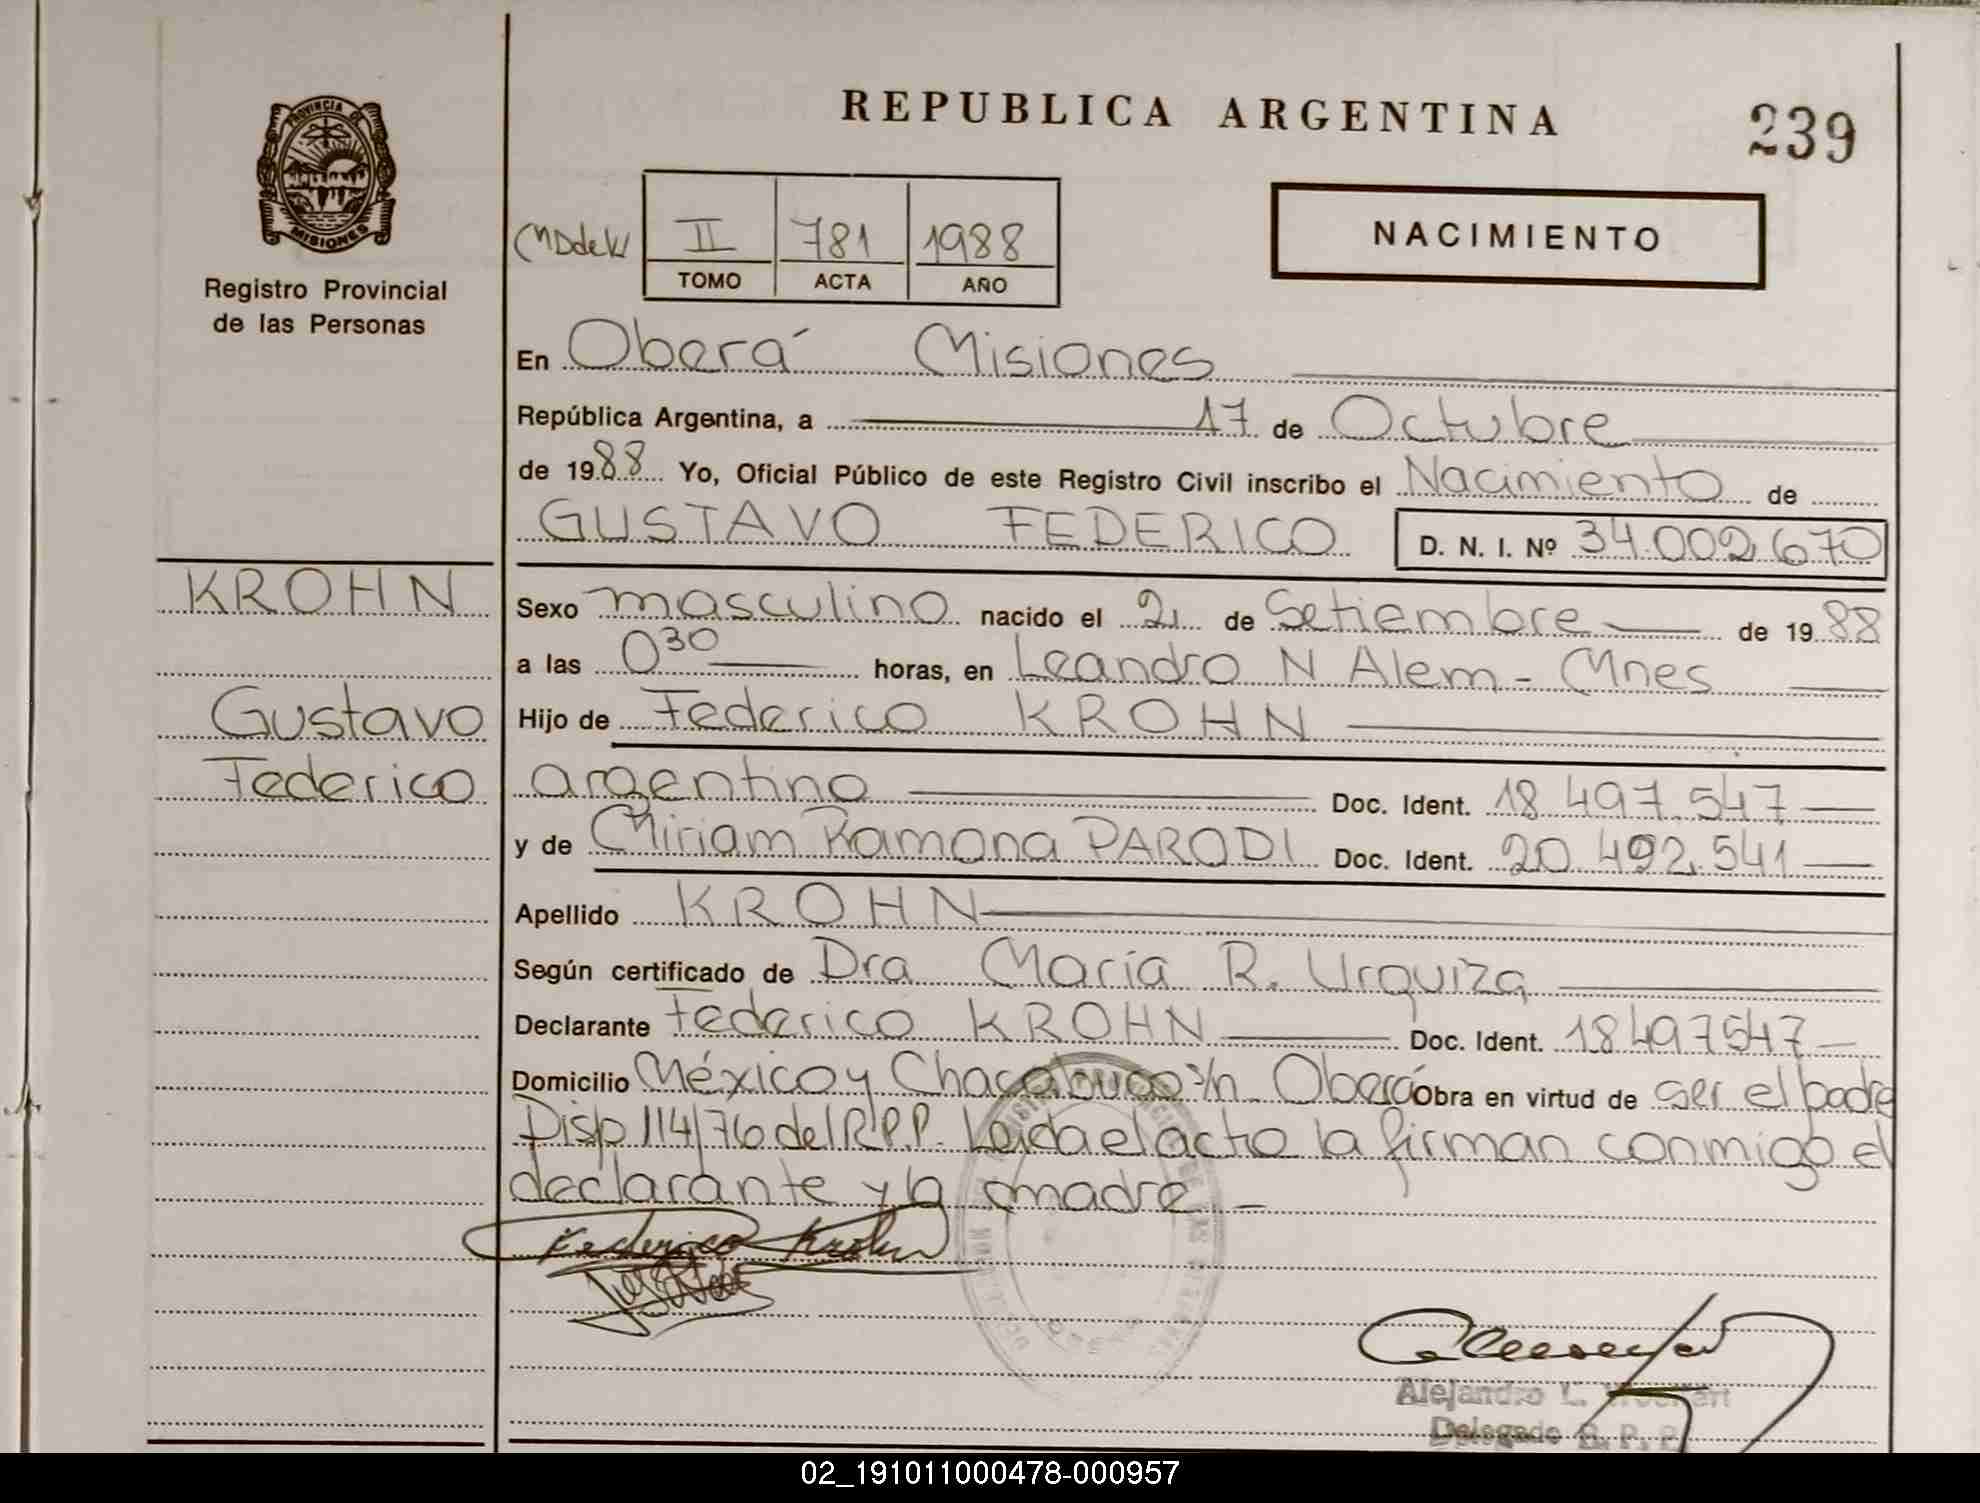 REPUBLICA ARGENTINA
239
PROVINCIA DE
MISIONES
Registro Provincial
de las Personas
II 781 1988
TOMO ACTA AÑO
NACIMIENTO
En Oberá Misiones
República Argentina, a 17 de Octubre
de 1988 Yo, Oficial Público de este Registro Civil inscribo el Nacimiento de
GUSTAVO FEDERICO D. N. I. Nº 34.002.670
KROHN
Gustavo
Federico
Sexo masculino nacido el 21 de Setiembre de 1988
a las 0 30 horas, en Leandro N Alem - Mnes
Hijo de Federico KROHN
argentino Doc. Ident. 18.497.547
y de Miriam Ramona PARODI Doc. Ident. 20.492.541
Apellido KROHN
Según certificado de Dra Maria R. Urquiza
Declarante Federico KROHN Doc. Ident. 18497547
Domicilio México y Chacabuco s/n Oberá Obra en virtud de ser el padre
Disp 114/76 del R.P.P. Leida el acto la firman conmigo el
declarante y la madre -
Federico Krohn
Alejandro L.
Delegado R. P. P.
02_191011000478-000957